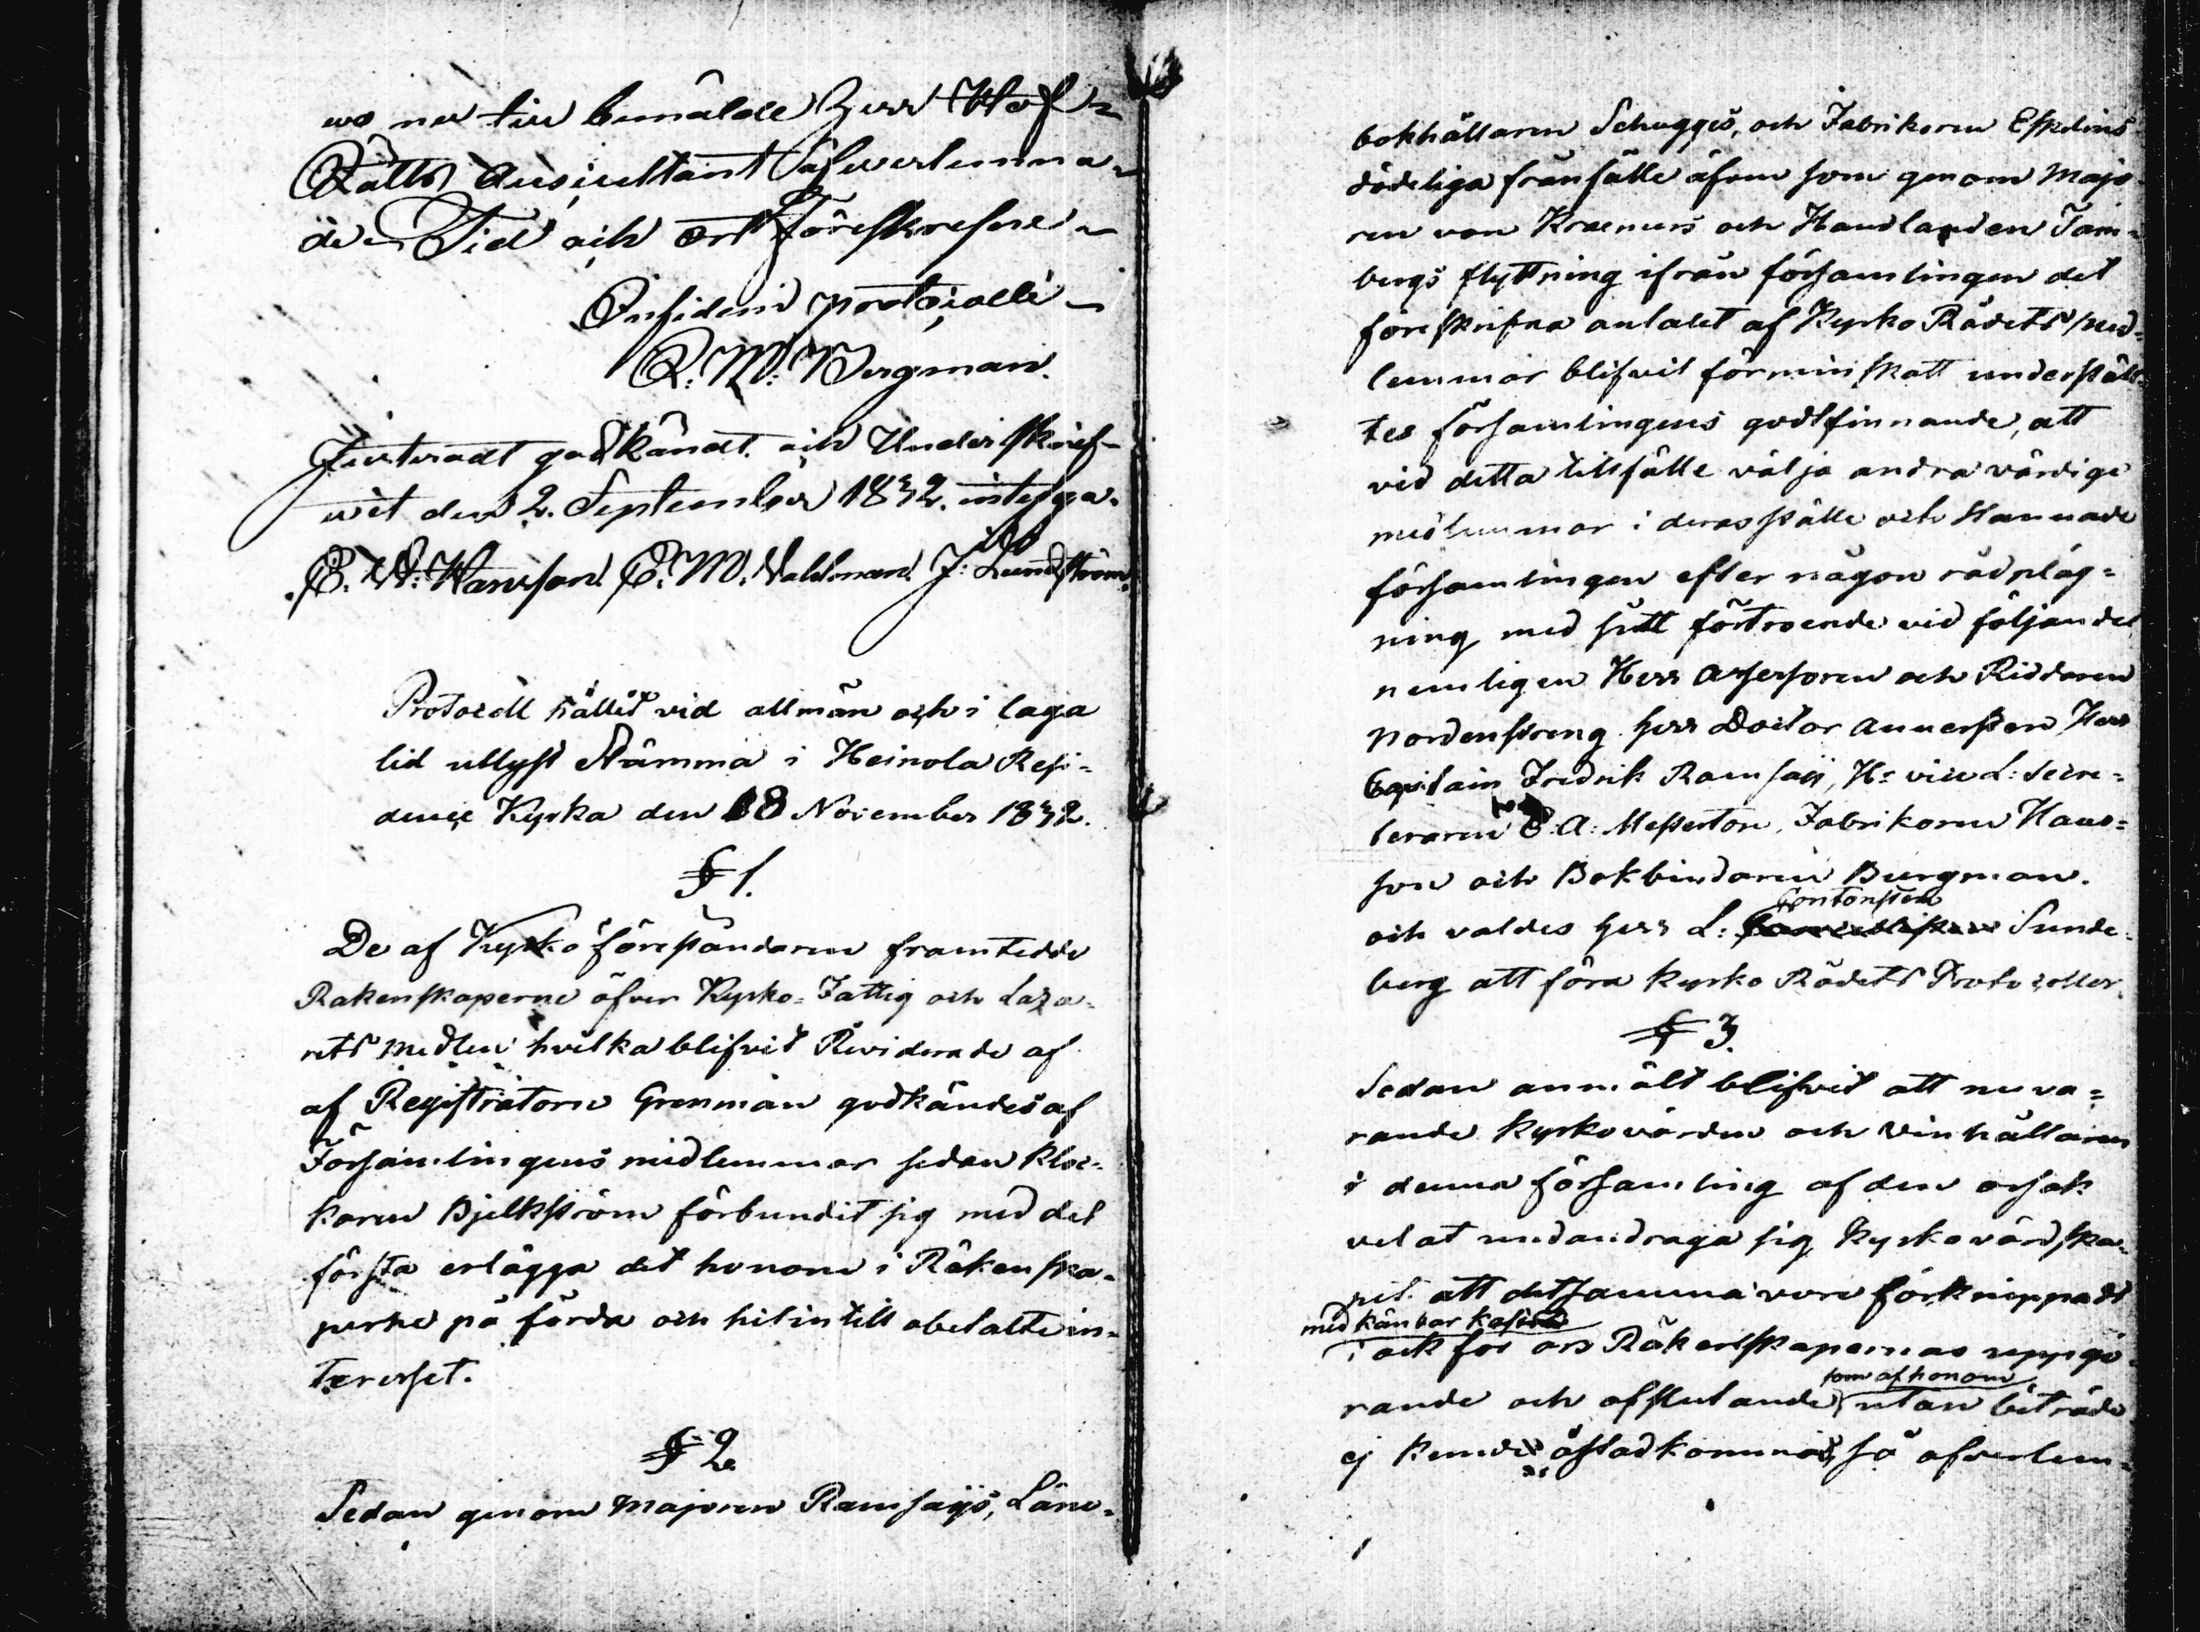 wo nu till bemälde Herr Hof-
Rätts Auscultant öfwerlemna-
des Tid och ort Föreskrefne
In fidem protocolli
R: M: Bergman.
Justeradt godkändt och Underskref-
wit den 2. September 1832. intyga.
E. W: Hanson E. M. Dahlman J: Lundström
Protocoll hållit vid allmän och i laga
tid utlyst Stämma i Heinola Resi-
dence Kyrka den 18 November 1832.
§ 1.
De af Kyrkoföreståndaren framtedde
Räkenskaperne öfver Kyrko- Fattig och Laza-
retts Medlen hvilka blifvit Reviderade af
af Registratorn Grenman godkändes af
Församlingens medlemmar sedan Kloc-
karen Bjelkström förbundit sig med det
första erlägga det honom i Räkenska-
perne på förda och hitintill obetalte in-
teresset.
§ 2
Sedan genom Majoren Ramsays, Läns-
bokhållaren Schugges, och Fabrikoren Eskelins
dödeliga frånfälle äfven som genom Majo
ren von Kraemers och Handlanden Tam-
bergs flyttning ifrån församlingen det
föreskrifna antalet af Kyrko Rådets med-
lemmar blifvit förminskatt underställ-
tes församlingens godtfinnande, att
vid detta tillfälle välja andra värdige
medlemmar i deras ställe och stannade
församlingen efter någon rådpläg-
ning med sitt förtroende vid följande
nemligen Herr Assessoren och Riddaren
Nordenstreng Herr Doctor Herr
Capitain Fredrik Ramsay, Hr vice L: Secre-
teraren A: Meserton, Fabrikoren Hans-
son och Bokbindaren Bergman.
Contoristen
och valdes Herr L: Sunde-
berg att föra Kyrko Rådets Protocoller.
§ 3.
Sedan anmält blifvit att nuva-
rande Kyrkovärden och vinhållaren
i denna församling af den orsak
velat undandraga sig Kyrkovärdska-
pet att detsamma vore förknippadt
med känbar
i ock för ors Räkenskapernas uppgö-
som af honom
rande och afslutande utan biträde
ej kunde åstadkommas, så öfverlem-